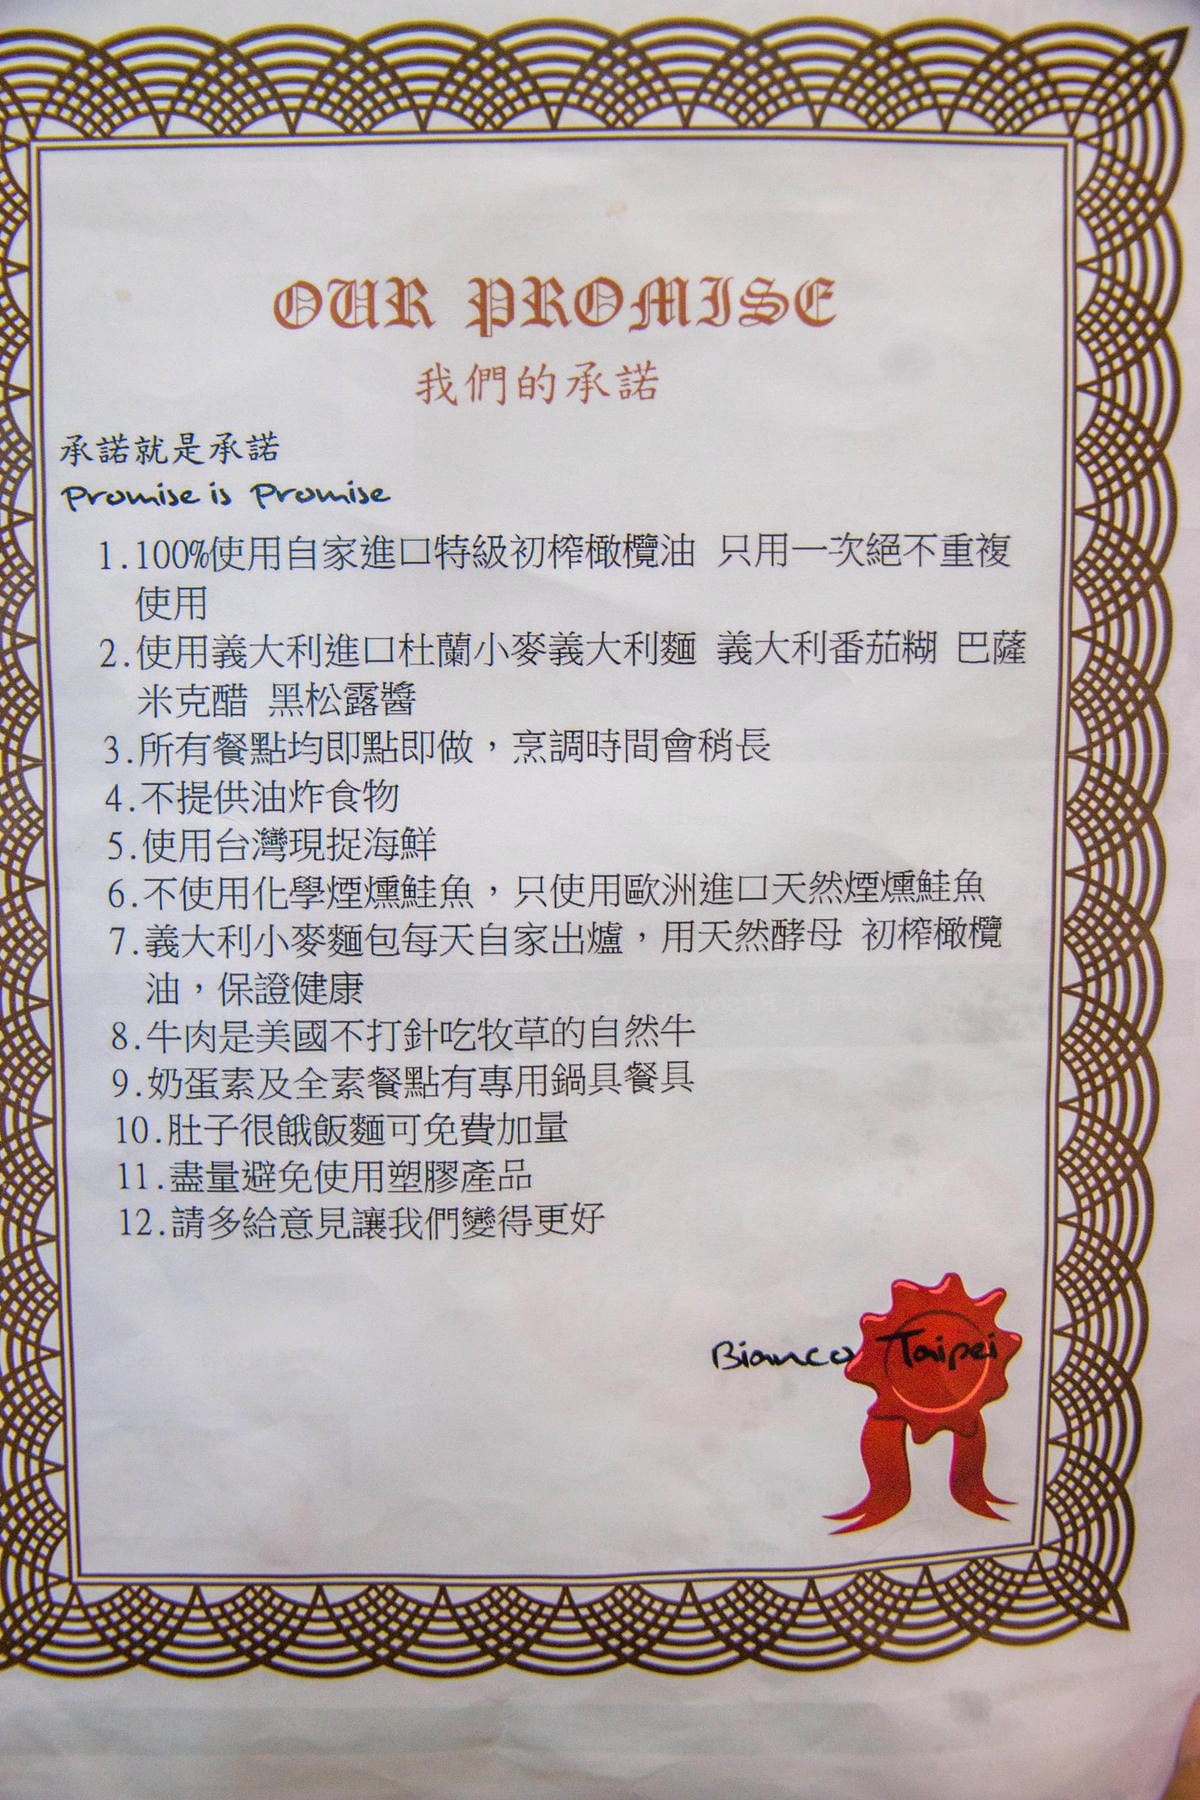 OUR PROMISE
我們的承諾
承諾就是承諾
Promise is Promise
1.100%使用自家進口特級初榨橄欖油 只用一次絕不重複
使用
2.使用義大利進口杜蘭小麥義大利麵 義大利番茄糊 巴薩
米克醋 黑松露醬
3.所有餐點均即點即做，烹調時間會稍長
4.不提供油炸食物
5.使用台灣現捉海鮮
6.不使用化學煙燻鮭魚，只使用歐洲進口天然煙燻鮭魚
7.義大利小麥麵包每天自家出爐，用天然酵母 初榨橄欖
油，保證健康
8.牛肉是美國不打針吃牧草的自然牛
9.奶蛋素及全素餐點有專用鍋具餐具
10.肚子很餓飯麵可免費加量
11.盡量避免使用塑膠產品
12.請多給意見讓我們變得更好
Bianco Taipei